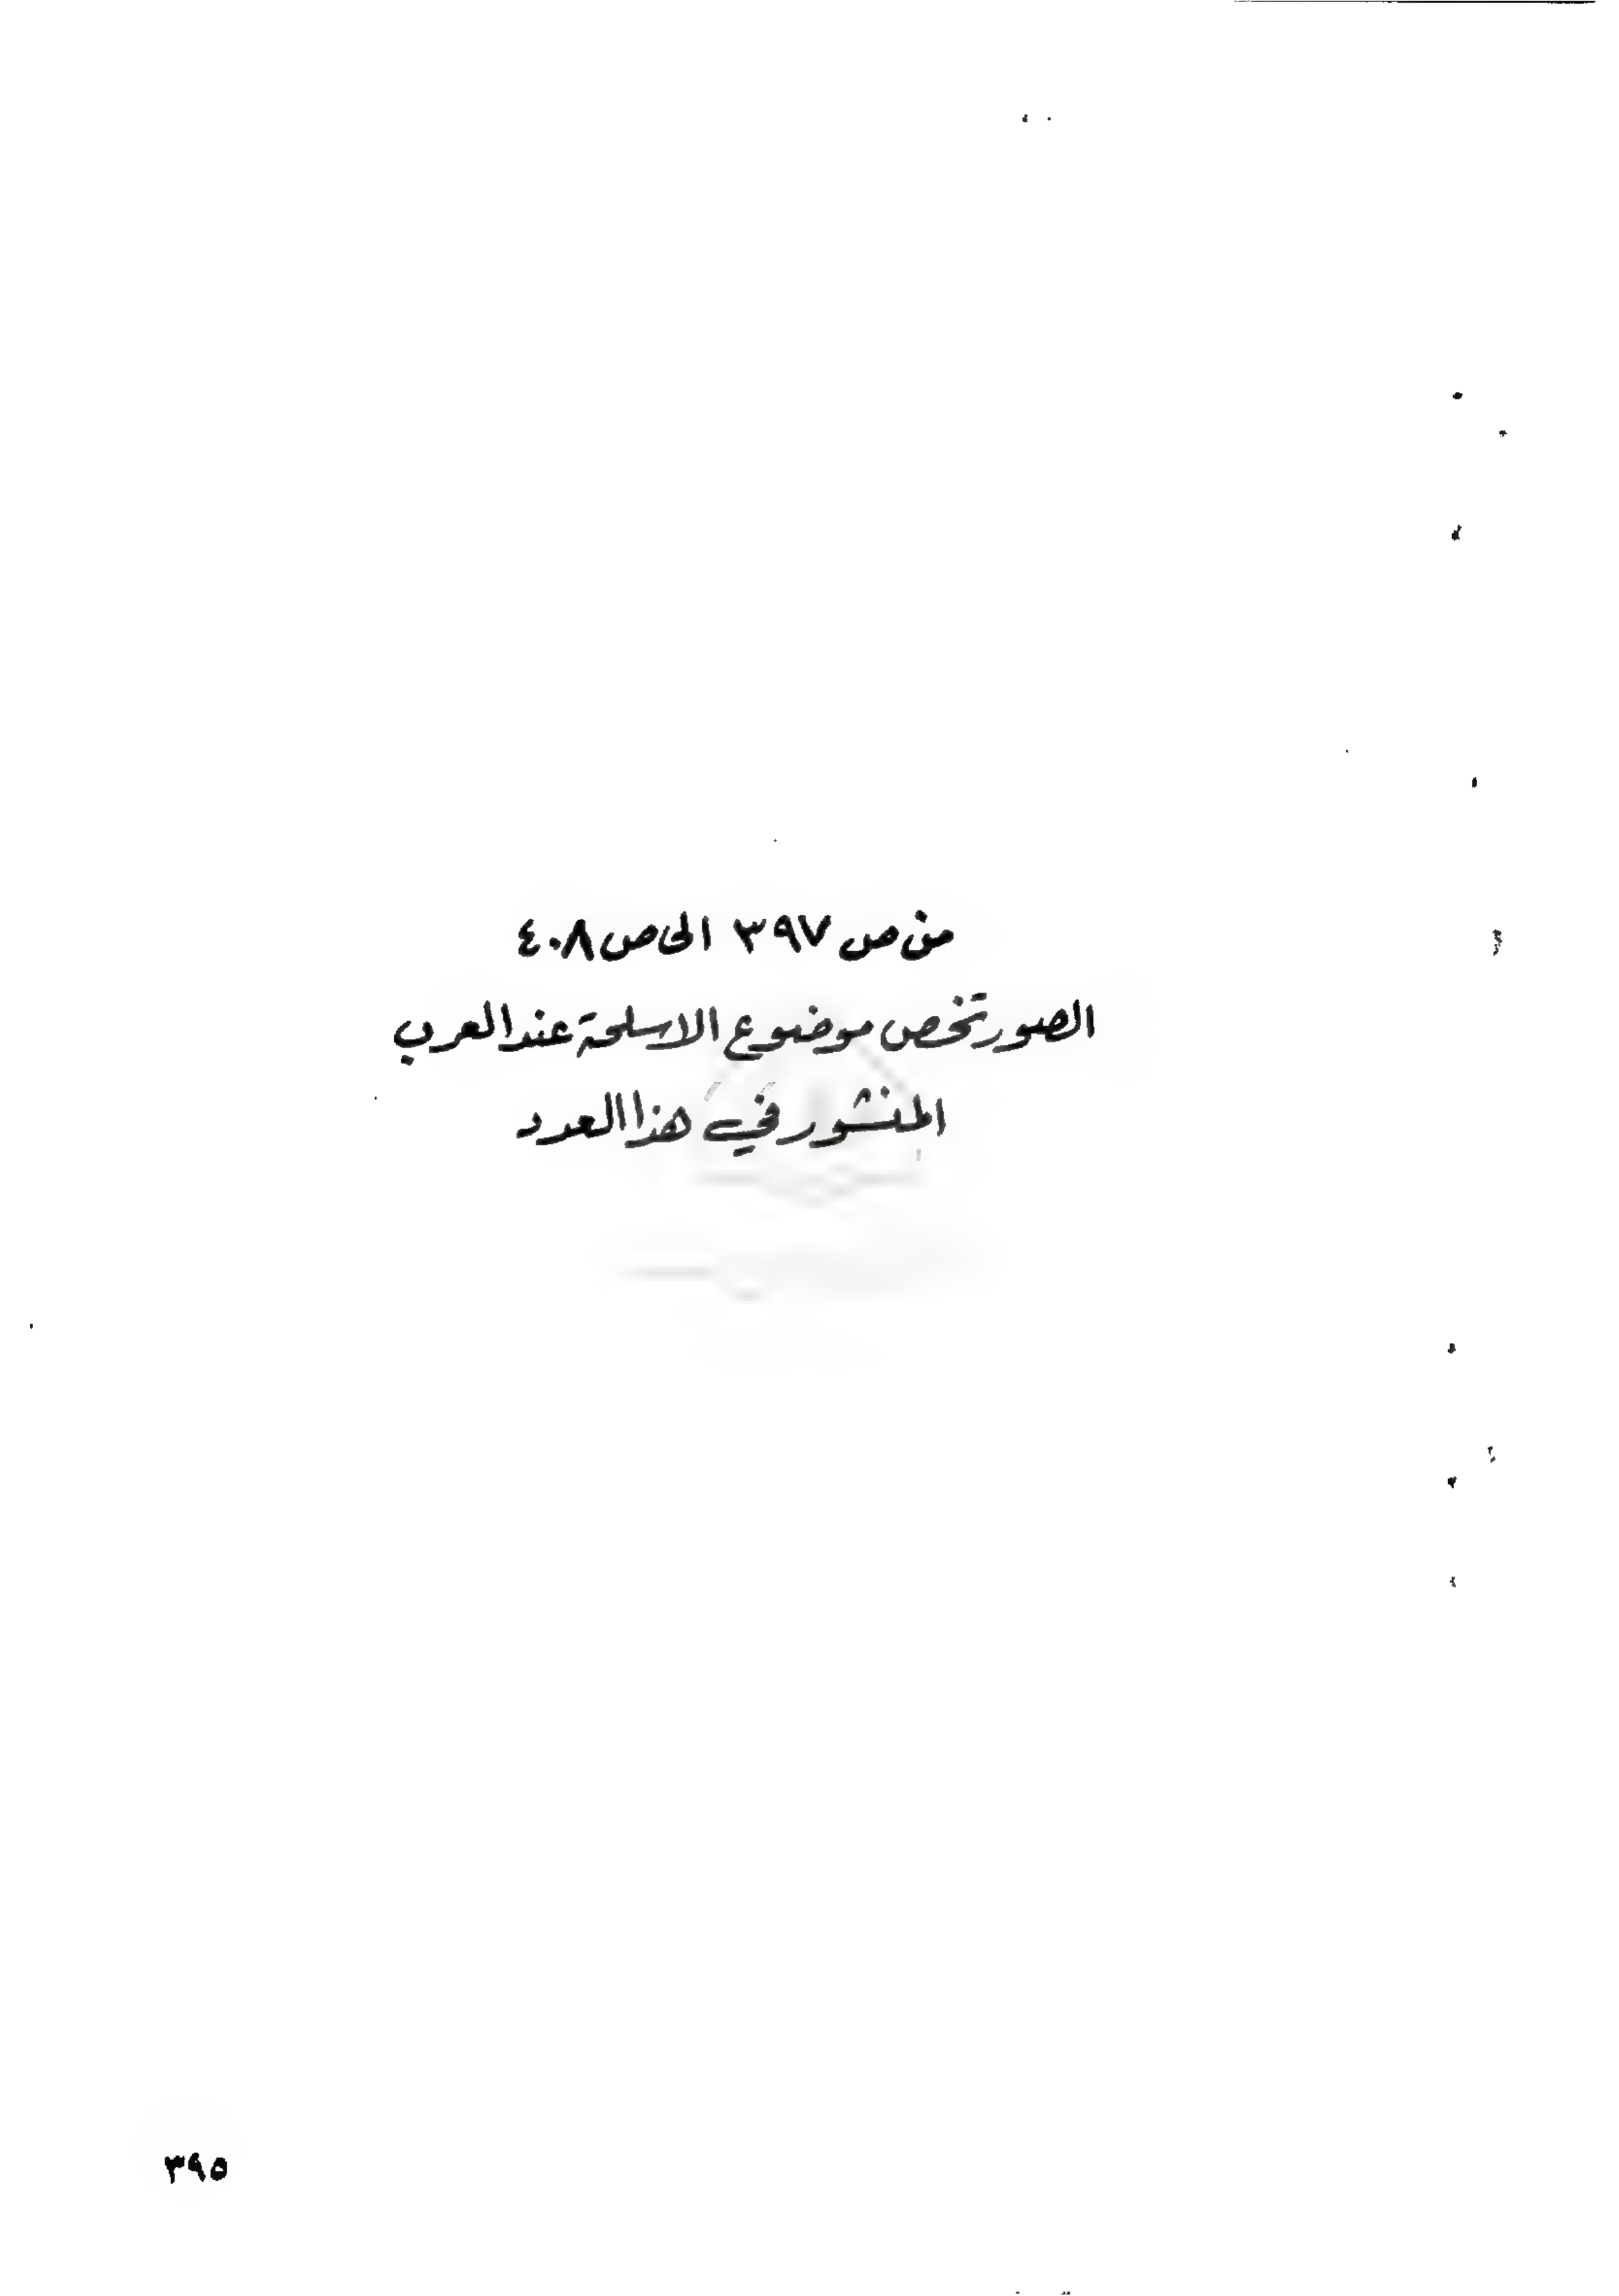 من ص ٣٩٧ الى ص ٤٠٨
الصور تخص موضوع الاسلحة عند العرب
المنشور في هذا العدد
٣٩٥